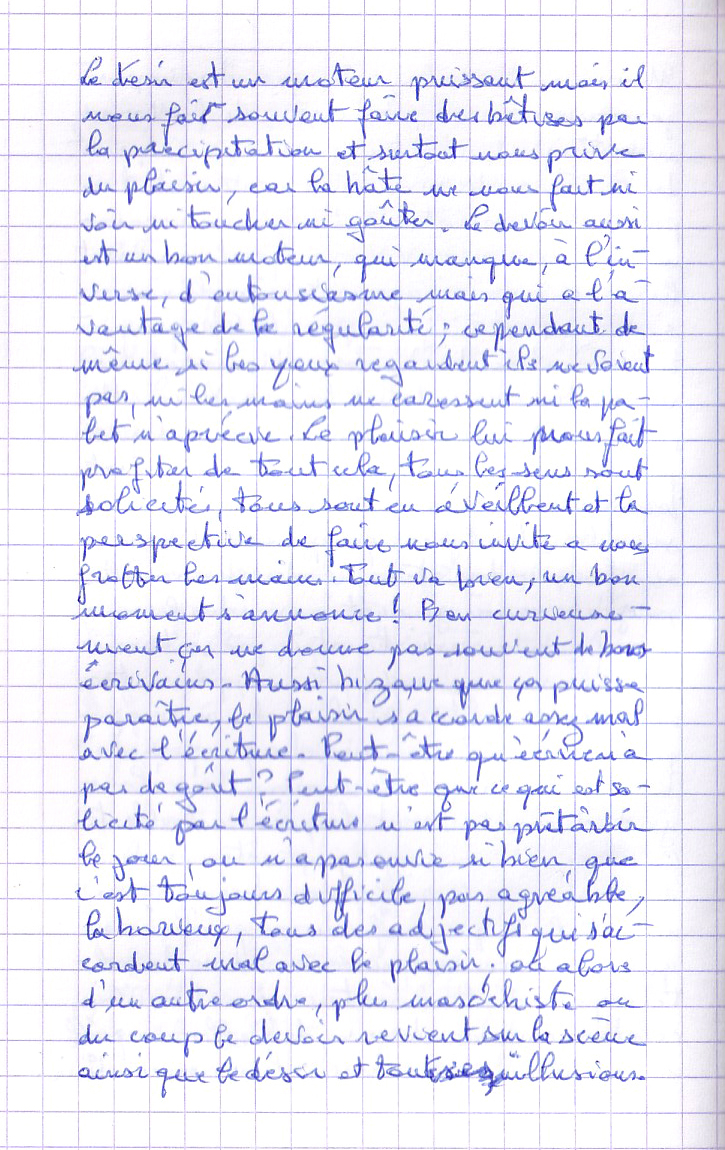 Le desir est un moteur puissant mais il
nous fait souvent faire des bêtises par
la précipitation et surtout nous prive
du plaisir, car la hâte ne nous fait ni
voir ni toucher ni goûter. Le devoir aussi
est un bon moteur, qui manque, à l'in-
verse, d'entousiasme mais qui a l'a-
vantage de la régularité ; cependant de
même si les yeux regardent ils ne voient
pas, ni les mains ne caressent ni la pa-
let n'aprécie. Le plaisir lui nous fait
profiter de tout cela, tous les sens sont
solicités, tous sont en éveil et la
perspective de faire nous invite a nous
frotter les mains. Tout va bien, un bon
moment s'annonce ! Bon curieuse-
ment ça ne donne pas souvent de bons
écrivains. Aussi bizarre que ça puisse
paraître, le plaisir s'accorde assez mal
avec l'écriture. Peut-être qu'écrire n'a
pas de goût ? Peut-être que ce qui est so-
licité par l'écriture n'est pas prêt à
le jour, ou n'a pas ouvre si bien que
c'est toujours difficile, pas agréable,
laborieux, tous des adjectifs qui s'ac-
cordent mal avec le plaisir, ou alors
d'un autre ordre, plus masochiste ou
du coup le devoir revient sur la scène
ainsi que le désir et illusions.